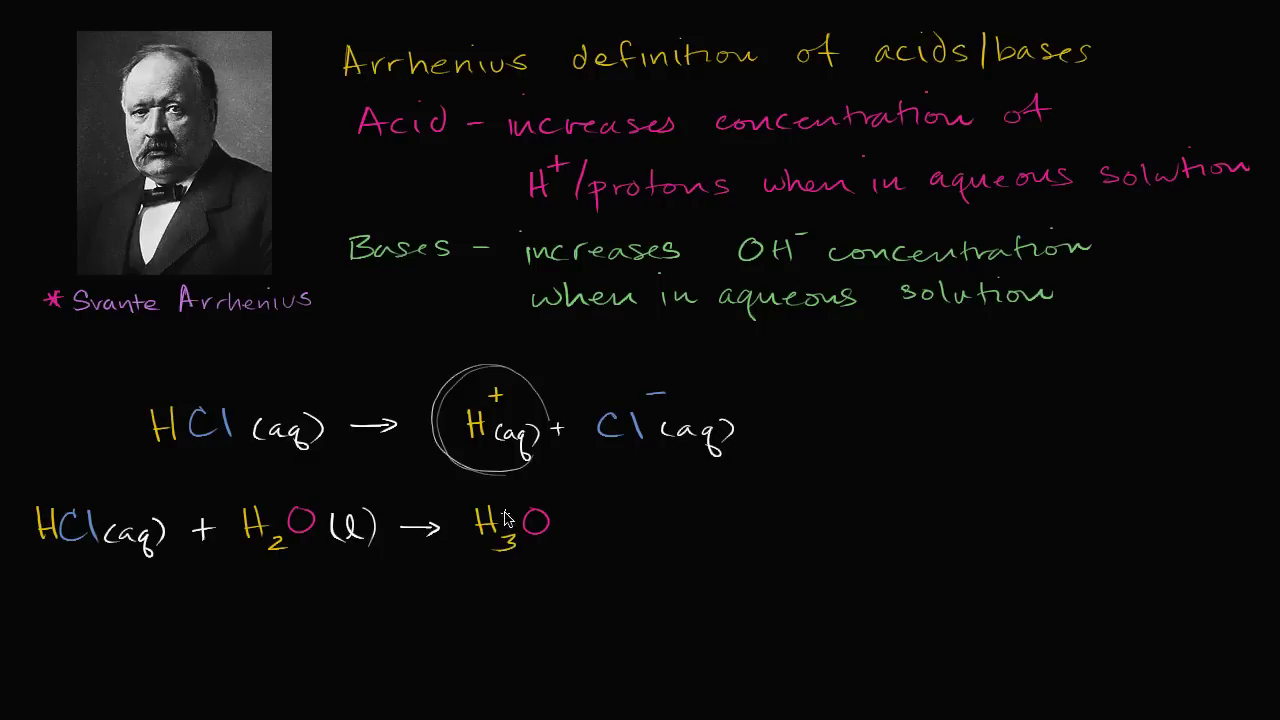 Arrhenius definition of acids/bases
Acid - increases concentration of
H⁺/protons when in aqueous solution
Bases - increases OH⁻ concentration
when in aqueous solution
* Svante Arrhenius
HCl (aq) → H⁺(aq) + Cl⁻(aq)
HCl(aq) + H₂O(l) → H₃O